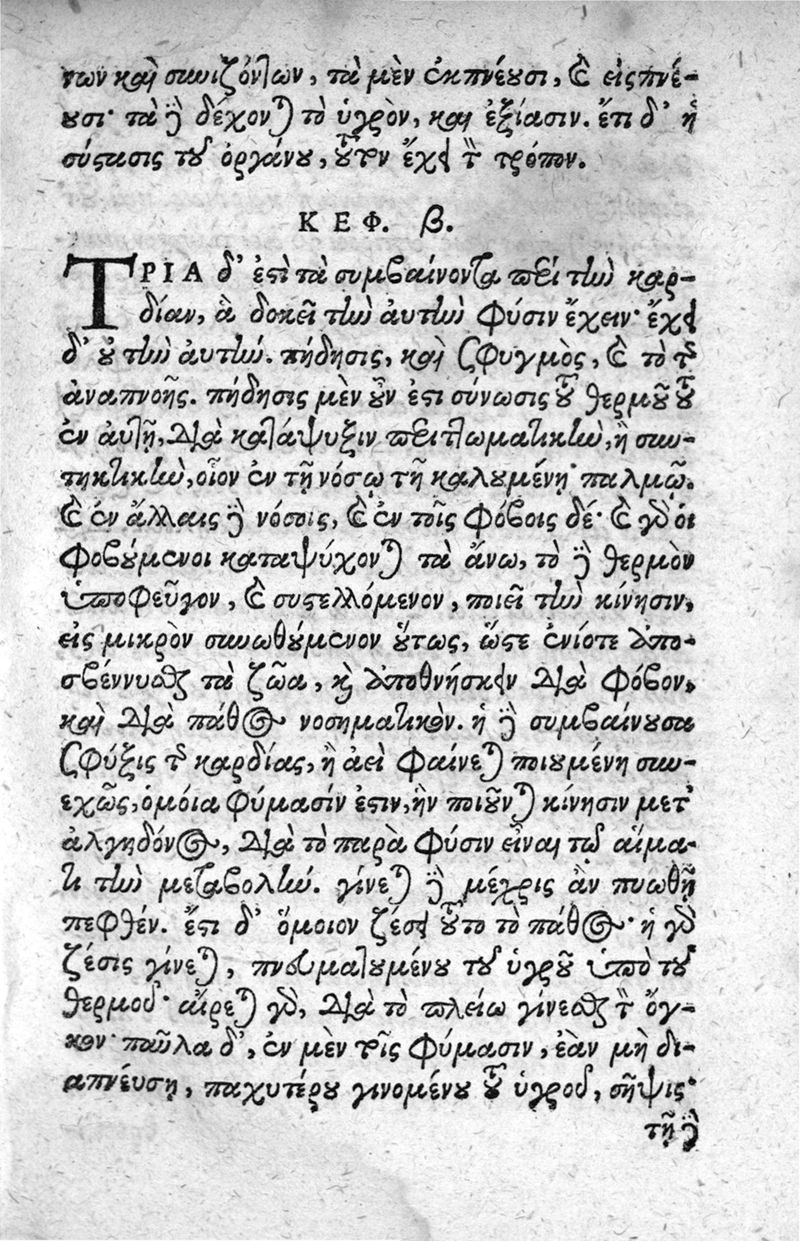 των καὶ σωιζόντων, τὰ μὲν ἐκπνέουσι, καὶ εἰσπνέ-
ουσι· τὰ δὲ δέχονται τὸ ὑγρὸν, καὶ ἐξίασιν. ἔτι δ' ἡ
σύστασις τοῦ ὀργάνου, τοῦτον ἔχει τὸν τρόπον.
ΚΕΦ. β.
ΤΡΙΑ δ' ἐστὶ τὰ συμβαίνοντα περὶ τὴν καρ-
δίαν, ἃ δοκεῖ τὴν αὐτὴν φύσιν ἔχειν· ἔχει
δ' οὐ τὴν αὐτήν. πήδησις, καὶ σφυγμὸς, καὶ τὸ τῆς
ἀναπνοῆς. πήδησις μὲν οὖν ἐστι σύνωσις τοῦ θερμοῦ τοῦ
ἐν αὐτῇ, διὰ κατάψυξιν περιττωματικὴν, ἢ συν-
τηκτικὴν, οἷον ἐν τῇ νόσῳ τῇ καλουμένῃ παλμῷ.
καὶ ἐν ἄλλαις δὲ νόσοις, καὶ ἐν τοῖς φόβοις δέ· καὶ γὰρ οἱ
φοβούμενοι καταψύχονται τὰ ἄνω, τὸ δὲ θερμὸν
ὑποφεῦγον, καὶ συστελλόμενον, ποιεῖ τὴν κίνησιν,
εἰς μικρὸν συνωθούμενον οὕτως, ὥστε ἐνίοτε ἀπο-
σβέννυσθαι τὰ ζῶα, καὶ ἀποθνήσκειν διὰ φόβον,
καὶ διὰ πάθος νοσηματικὸν. ἡ δὲ συμβαίνουσα
σφύξις τῆς καρδίας, ἣ ἀεὶ φαίνεται ποιουμένη συν-
εχῶς, ὁμοία φύμασίν ἐστιν, ἣν ποιοῦνται κίνησιν μετ'
ἀλγηδόνος, διὰ τὸ παρὰ φύσιν εἶναι τῷ αἵμα-
τι τὴν μεταβολήν. γίνεται δὲ μέχρις ἂν πυωθῇ
πεφθέν. ἔστι δ' ὅμοιον ζέσει τοῦτο τὸ πάθος· ἡ γὰρ
ζέσις γίνεται, πνευματουμένου τοῦ ὑγροῦ ὑπὸ τοῦ
θερμοῦ· αἴρεται γὰρ, διὰ τὸ πλείω γίνεσθαι τὸν ὄγ-
κον· παῦλα δ', ἐν μὲν τοῖς φύμασιν, ἐὰν μὴ δι-
απνεύσῃ, παχυτέρου γινομένου τοῦ ὑγροῦ, σῆψις·
τῇ δὲ